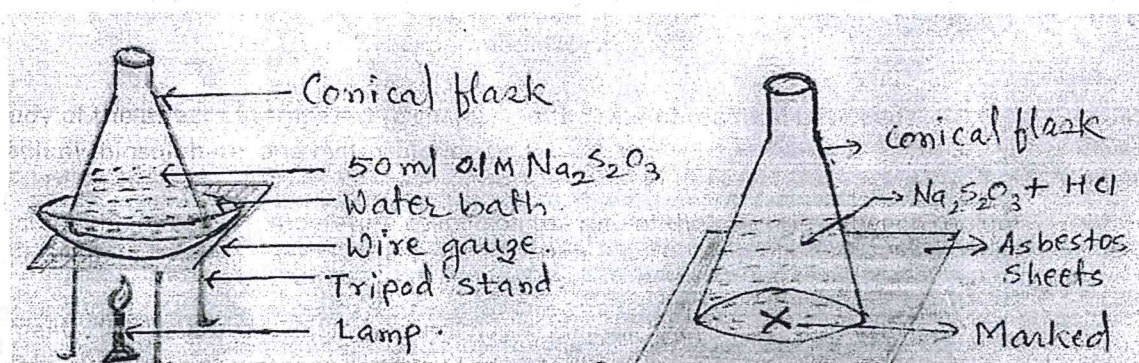 Conical flask
50 ml 0.1M Na₂S₂O₃
Water bath
Wire gauze.
Tripod stand
Lamp.
conical flask
Na₂S₂O₃ + HCl
Asbestos
Sheets
X
Marked